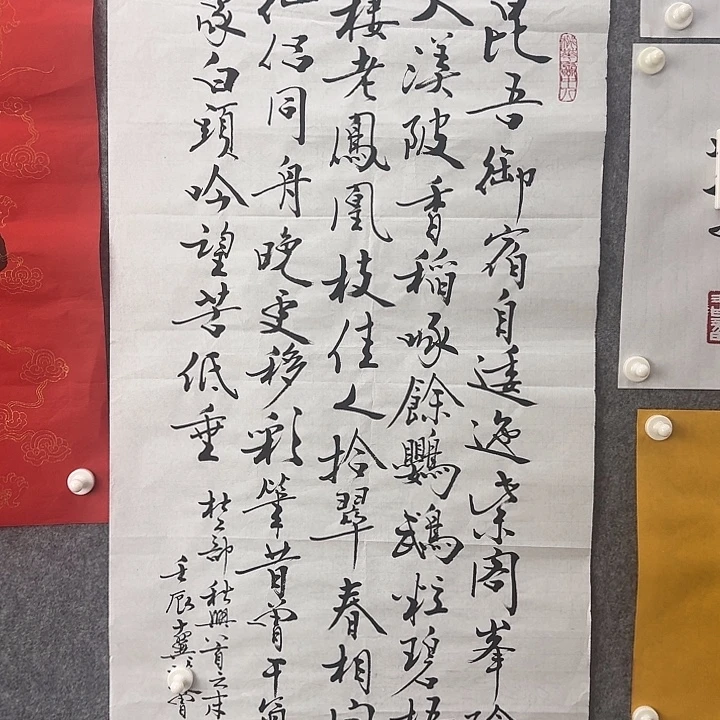 昆吾御宿自逶迤紫閣峯陰
入渼陂香稻啄餘鸚鵡粒碧梧
棲老鳳凰枝佳人拾翠春相問
仙侣同舟晚更移彩筆昔曾干氣
象白頭吟望苦低垂
杜工部秋興八首之
壬辰